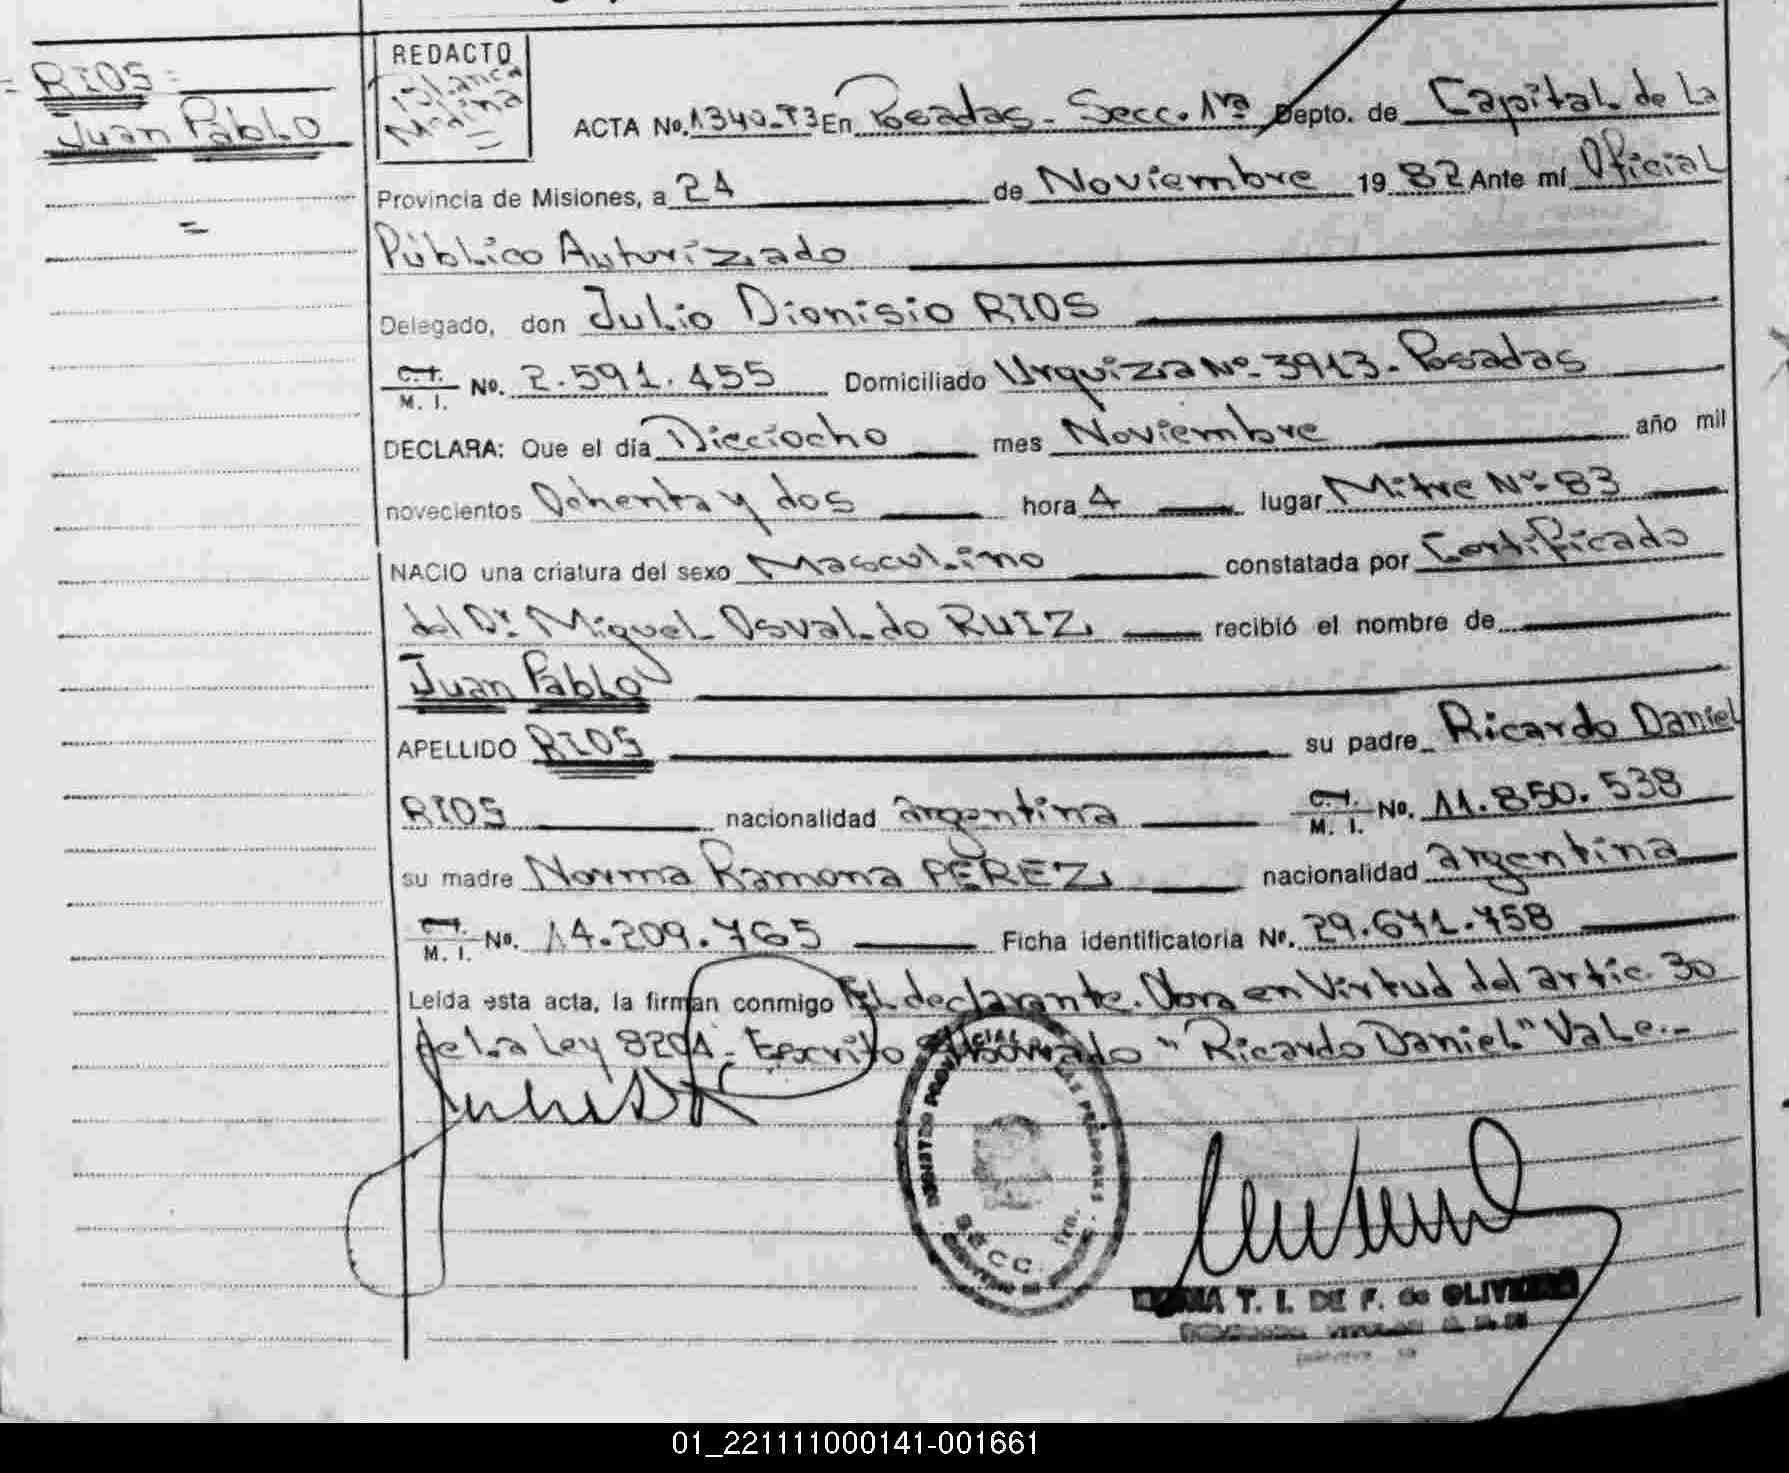 = RIOS =
Juan Pablo
=
REDACTO
Blanca
Medina
=
ACTA No. 1340-T3 En Posadas - Secc. 1ra Depto. de Capital de La
Provincia de Misiones, a 24 de Noviembre 1982 Ante mí Oficial
Público Autorizado
Delegado, don Julio Dionisio RIOS
C.I. M. I. No. 2.591.455 Domiciliado Urquiza Nº 3913 - Posadas
DECLARA: Que el día Dieciocho mes Noviembre año mil
novecientos Ochenta y dos hora 4 lugar Mitre Nº 83
NACIO una criatura del sexo Masculino constatada por Certificado
del Dr. Miguel Osvaldo RUIZ recibió el nombre de
Juan Pablo
APELLIDO RIOS su padre Ricardo Daniel
RIOS nacionalidad argentina C.I. M. I. No. 11.850.538
su madre Norma Ramona PEREZ nacionalidad argentina
C.I. M. I. No. 14.209.765 Ficha identificatoria No. 29.671.758
Leída esta acta, la firman conmigo El declarante. Obra en Virtud del artic. 30
de la Ley 8204 - Escrito s/borrado "Ricardo Daniel" Vale.-
REGISTRO PROVINCIAL DE LAS PERSONAS
SECC. 1ra.
T. I. DE F. de OLIVEIRO
01_221111000141-001661